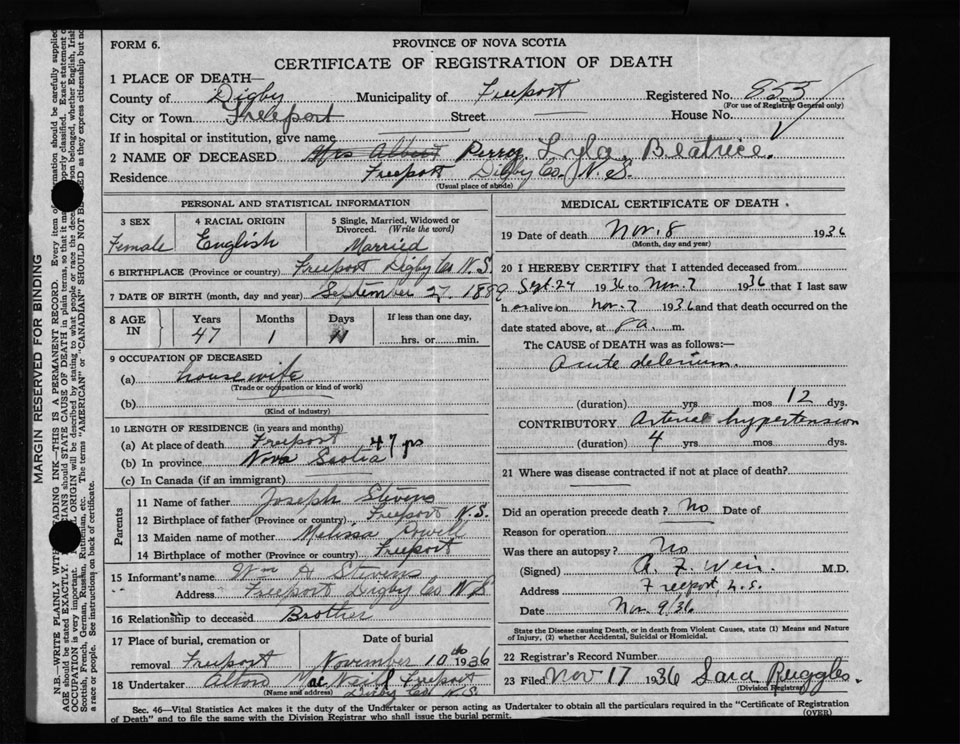 FORM 6.
PROVINCE OF NOVA SCOTIA
CERTIFICATE OF REGISTRATION OF DEATH
1 PLACE OF DEATH—
County of Digby Municipality of Freeport Registered No. 853
(For use of Registrar General only)
City or Town Freeport Street House No.
If in hospital or institution, give name
2 NAME OF DECEASED Mrs Albert Perry, Lyla, Beatrice
Residence Freeport Digby Co. N.S.
(Usual place of abode)
PERSONAL AND STATISTICAL INFORMATION
3 SEX 4 RACIAL ORIGIN 5 Single, Married, Widowed or Divorced. (Write the word)
Female English Married
6 BIRTHPLACE (Province or country) Freeport Digby Co N.S.
7 DATE OF BIRTH (month, day and year) September 27, 1889
8 AGE IN Years Months Days If less than one day,
47 1 11 hrs. or min.
9 OCCUPATION OF DECEASED
(a) housewife
(Trade or occupation or kind of work)
(b)
(Kind of industry)
10 LENGTH OF RESIDENCE (in years and months)
(a) At place of death Freeport 47 yrs
(b) In province Nova Scotia
(c) In Canada (if an immigrant)
Parents
11 Name of father Joseph Stevens
12 Birthplace of father (Province or country) Freeport N.S.
13 Maiden name of mother Melissa Powell
14 Birthplace of mother (Province or country) Freeport
15 Informant's name Wm H Stevens
Address Freeport Digby Co N S
16 Relationship to deceased Brother
17 Place of burial, cremation or removal Freeport
Date of burial November 10th 1936
18 Undertaker Alton MacNeill Freeport
(Name and address) Digby Co N.S.
MEDICAL CERTIFICATE OF DEATH
19 Date of death Nov. 8 1936
(Month, day and year)
20 I HEREBY CERTIFY that I attended deceased from
Sept. 24 1936 to Nov. 7 1936 that I last saw
h er alive on Nov. 7 1936 and that death occurred on the
date stated above, at m.
The CAUSE of DEATH was as follows:—
Acute delerium.
(duration) yrs mos 12 dys.
CONTRIBUTORY Arterial hypertension
(duration) 4 yrs mos dys.
21 Where was disease contracted if not at place of death?
Did an operation precede death? No Date of
Reason for operation
Was there an autopsy? No
(Signed) A. F. Weir. M.D.
Address Freeport, N.S.
Date Nov. 9/36
State the Disease causing Death, or in death from Violent Causes, state (1) Means and Nature
of Injury, (2) whether Accidental, Suicidal or Homicidal.
22 Registrar's Record Number
23 Filed Nov 17 1936 Sara Ruggles.
(Division Registrar)
Sec. 46—Vital Statistics Act makes it the duty of the Undertaker or person acting as Undertaker to obtain all the particulars required in the "Certificate of Registration
of Death" and to file the same with the Division Registrar who shall issue the burial permit.
(OVER)
MARGIN RESERVED FOR BINDING
N.B.—WRITE PLAINLY WITH FADING INK—THIS IS A PERMANENT RECORD. Every item of information should be carefully supplied.
AGE should be stated EXACTLY. should STATE CAUSE OF DEATH in plain terms, so that it may be properly classified. Exact statement of
OCCUPATION is very important. ORIGIN will be described by stating to what people or race the deceased person belonged, whether English, Irish,
Scottish, French, German, Russian, Ruthenian, etc. The terms "AMERICAN" or "CANADIAN" SHOULD NOT BE USED as they express citizenship but not
a race or people. See instructions on back of certificate.